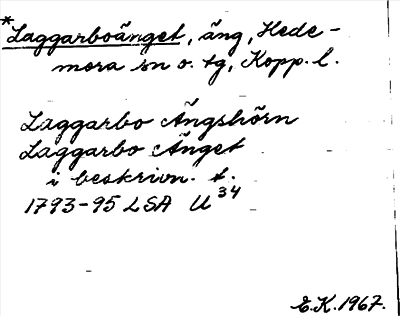 *Laggarboänget, äng, Hede-
mora sn o. tg, Kopp. l.
Laggarbo Ängshörn
Laggarbo Änget
i beskrivn. t.
1793-95 LSA U34
E.K. 1967.